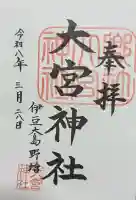 奉拝
大宮神社
伊豆大島野増
令和八年
三月二八日